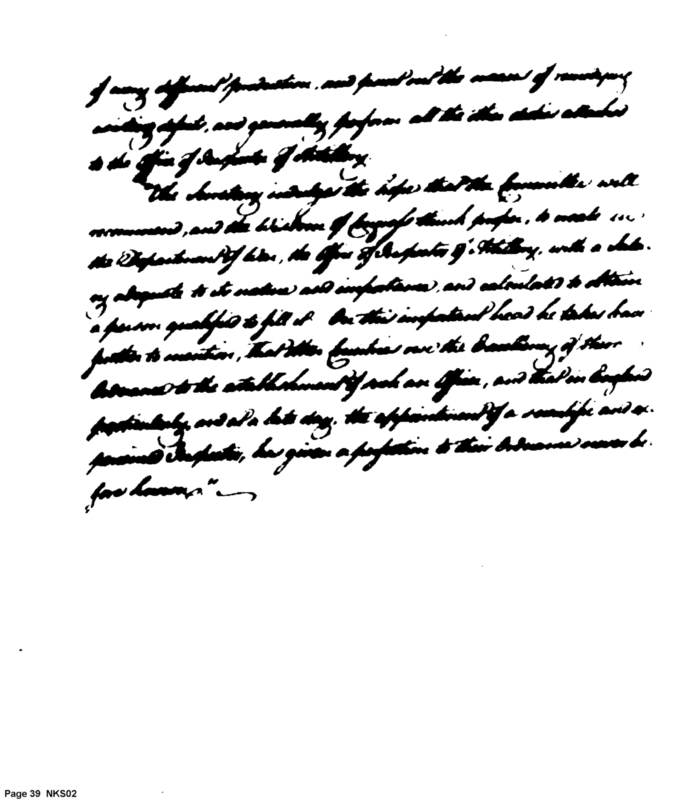 of many different production, and point out the means of remedying
existing defects, and generally perform all the other duties attached
to the Office of Inspector of Artillery.
"The Secretary indulges the hope that the Committee will
recommend, and the Wisdom of Congress think proper, to create in
the Department of War, the Office of Inspector of Artillery, with a Sala-
ry adequate to its nature and importance, and calculated to obtain
a person qualified to fill it. On this important head he takes leave
further to mention, that other Countries owe the Excellency of their
Ordnance to the establishment of such an Officer, and that in England
particularly, and at a late day, the appointment of a scientific and ex-
perienced Inspector, has given a perfection to their Ordnance never be-
fore known."
Page 39 NKS02